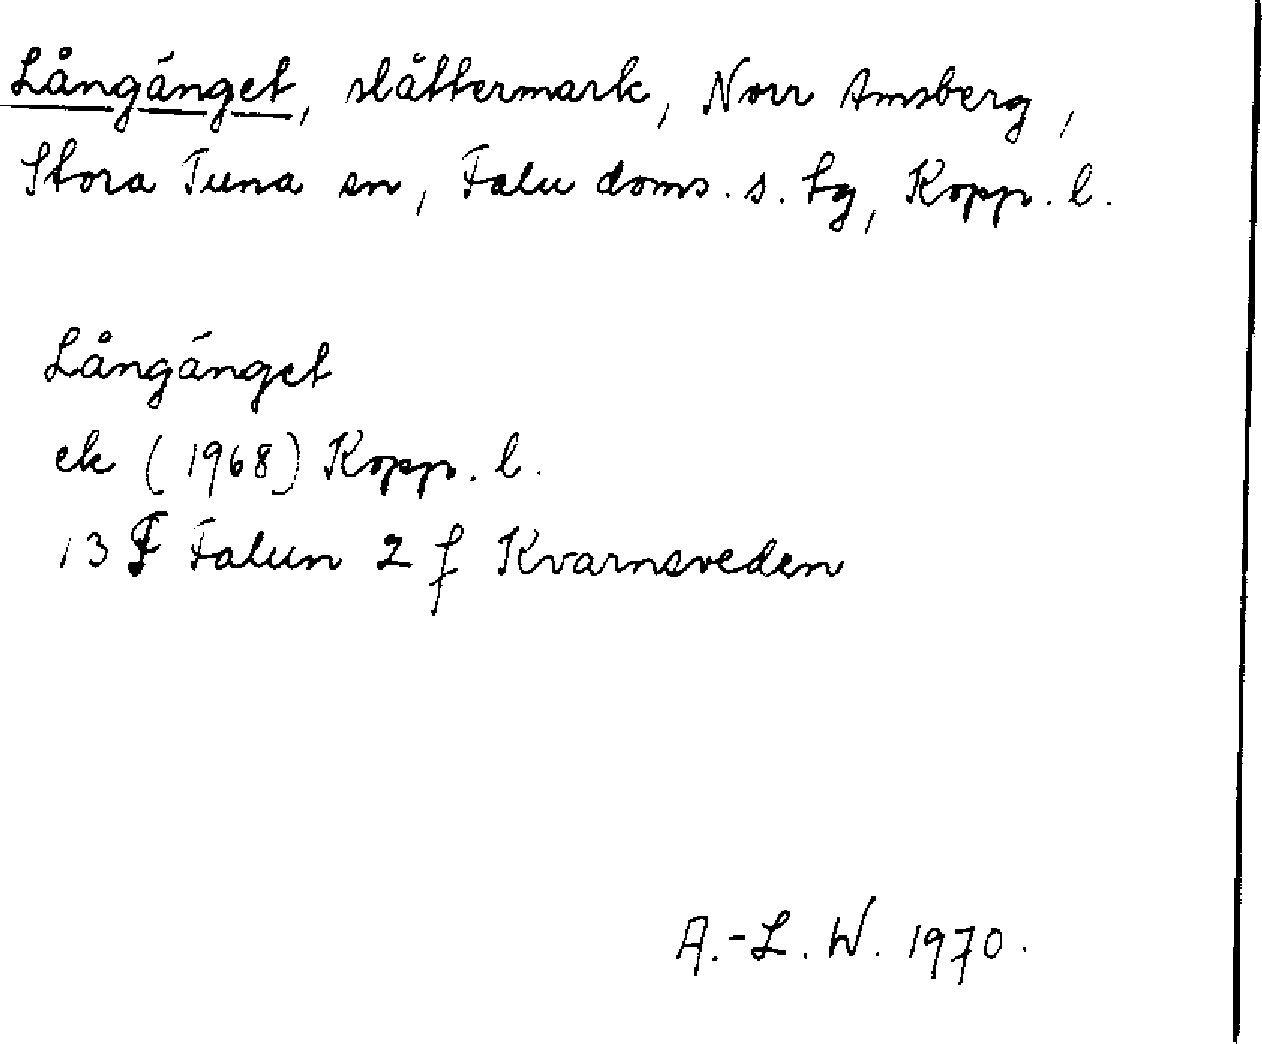 Långänget, slåttermark, Norr Amsberg,
Stora Tuna sn, Falu doms. s. tg, Kopp. l.
Långänget
ek (1968) Kopp. l.
13 F Falun 2 f Kvarnsveden
A.-L. W. 1970.